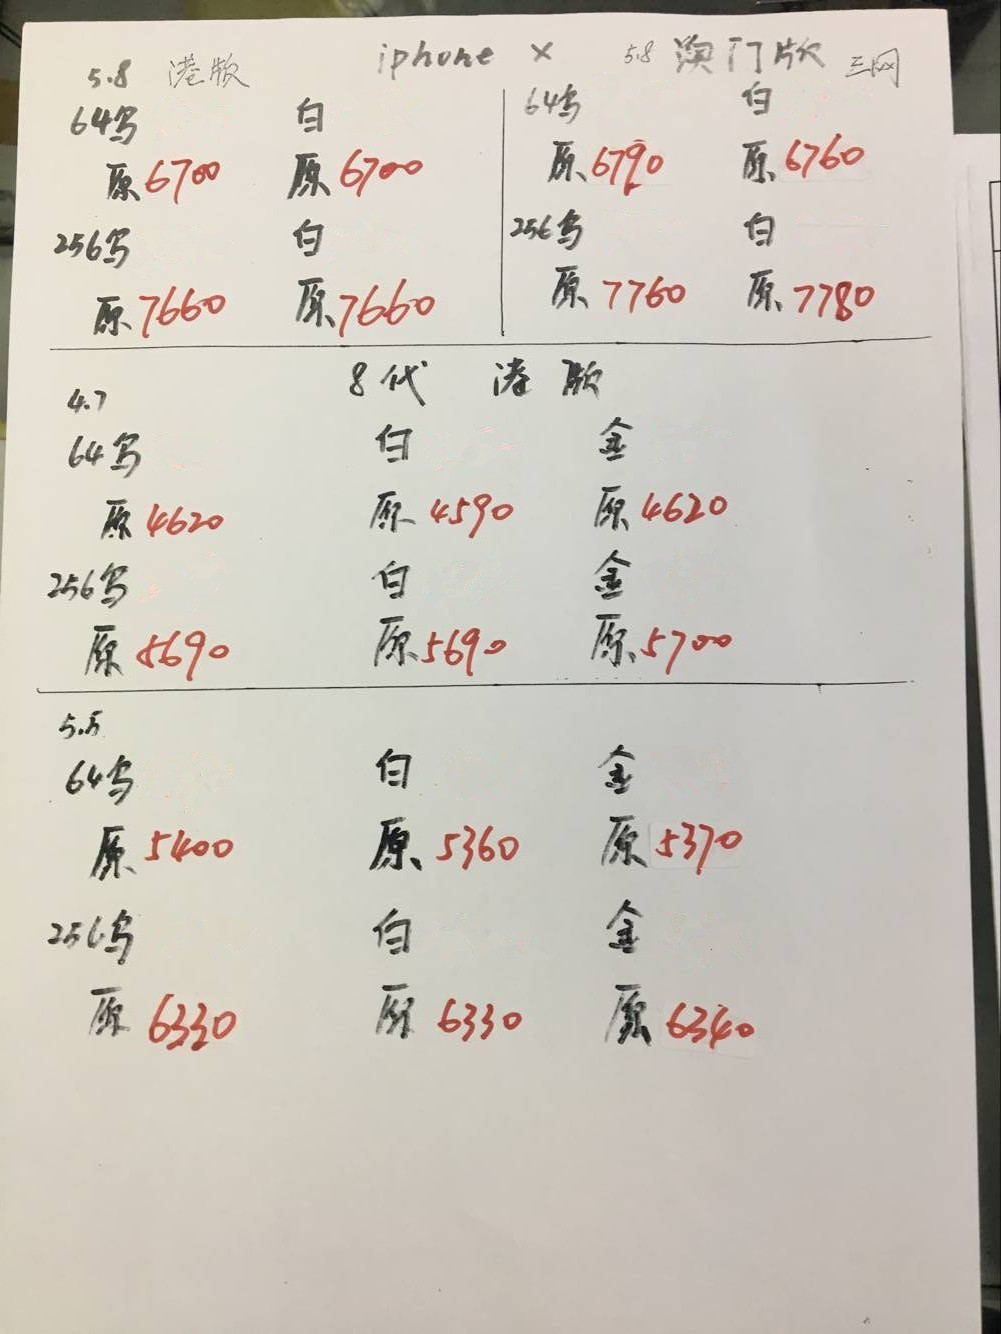 iphone X
5.8 港版
64乌 白
原 6700 原 6700
256乌 白
原 7660 原 7660
5.8 澳门版 三网
64乌 白
原 6790 原 6760
256乌 白
原 7760 原 7780
8代 港版
4.7
64乌 白 金
原 4620 原 4590 原 4620
256乌 白 金
原 5690 原 5690 原 5700
5.5
64乌 白 金
原 5400 原 5360 原 5370
256乌 白 金
原 6330 原 6330 原 6340